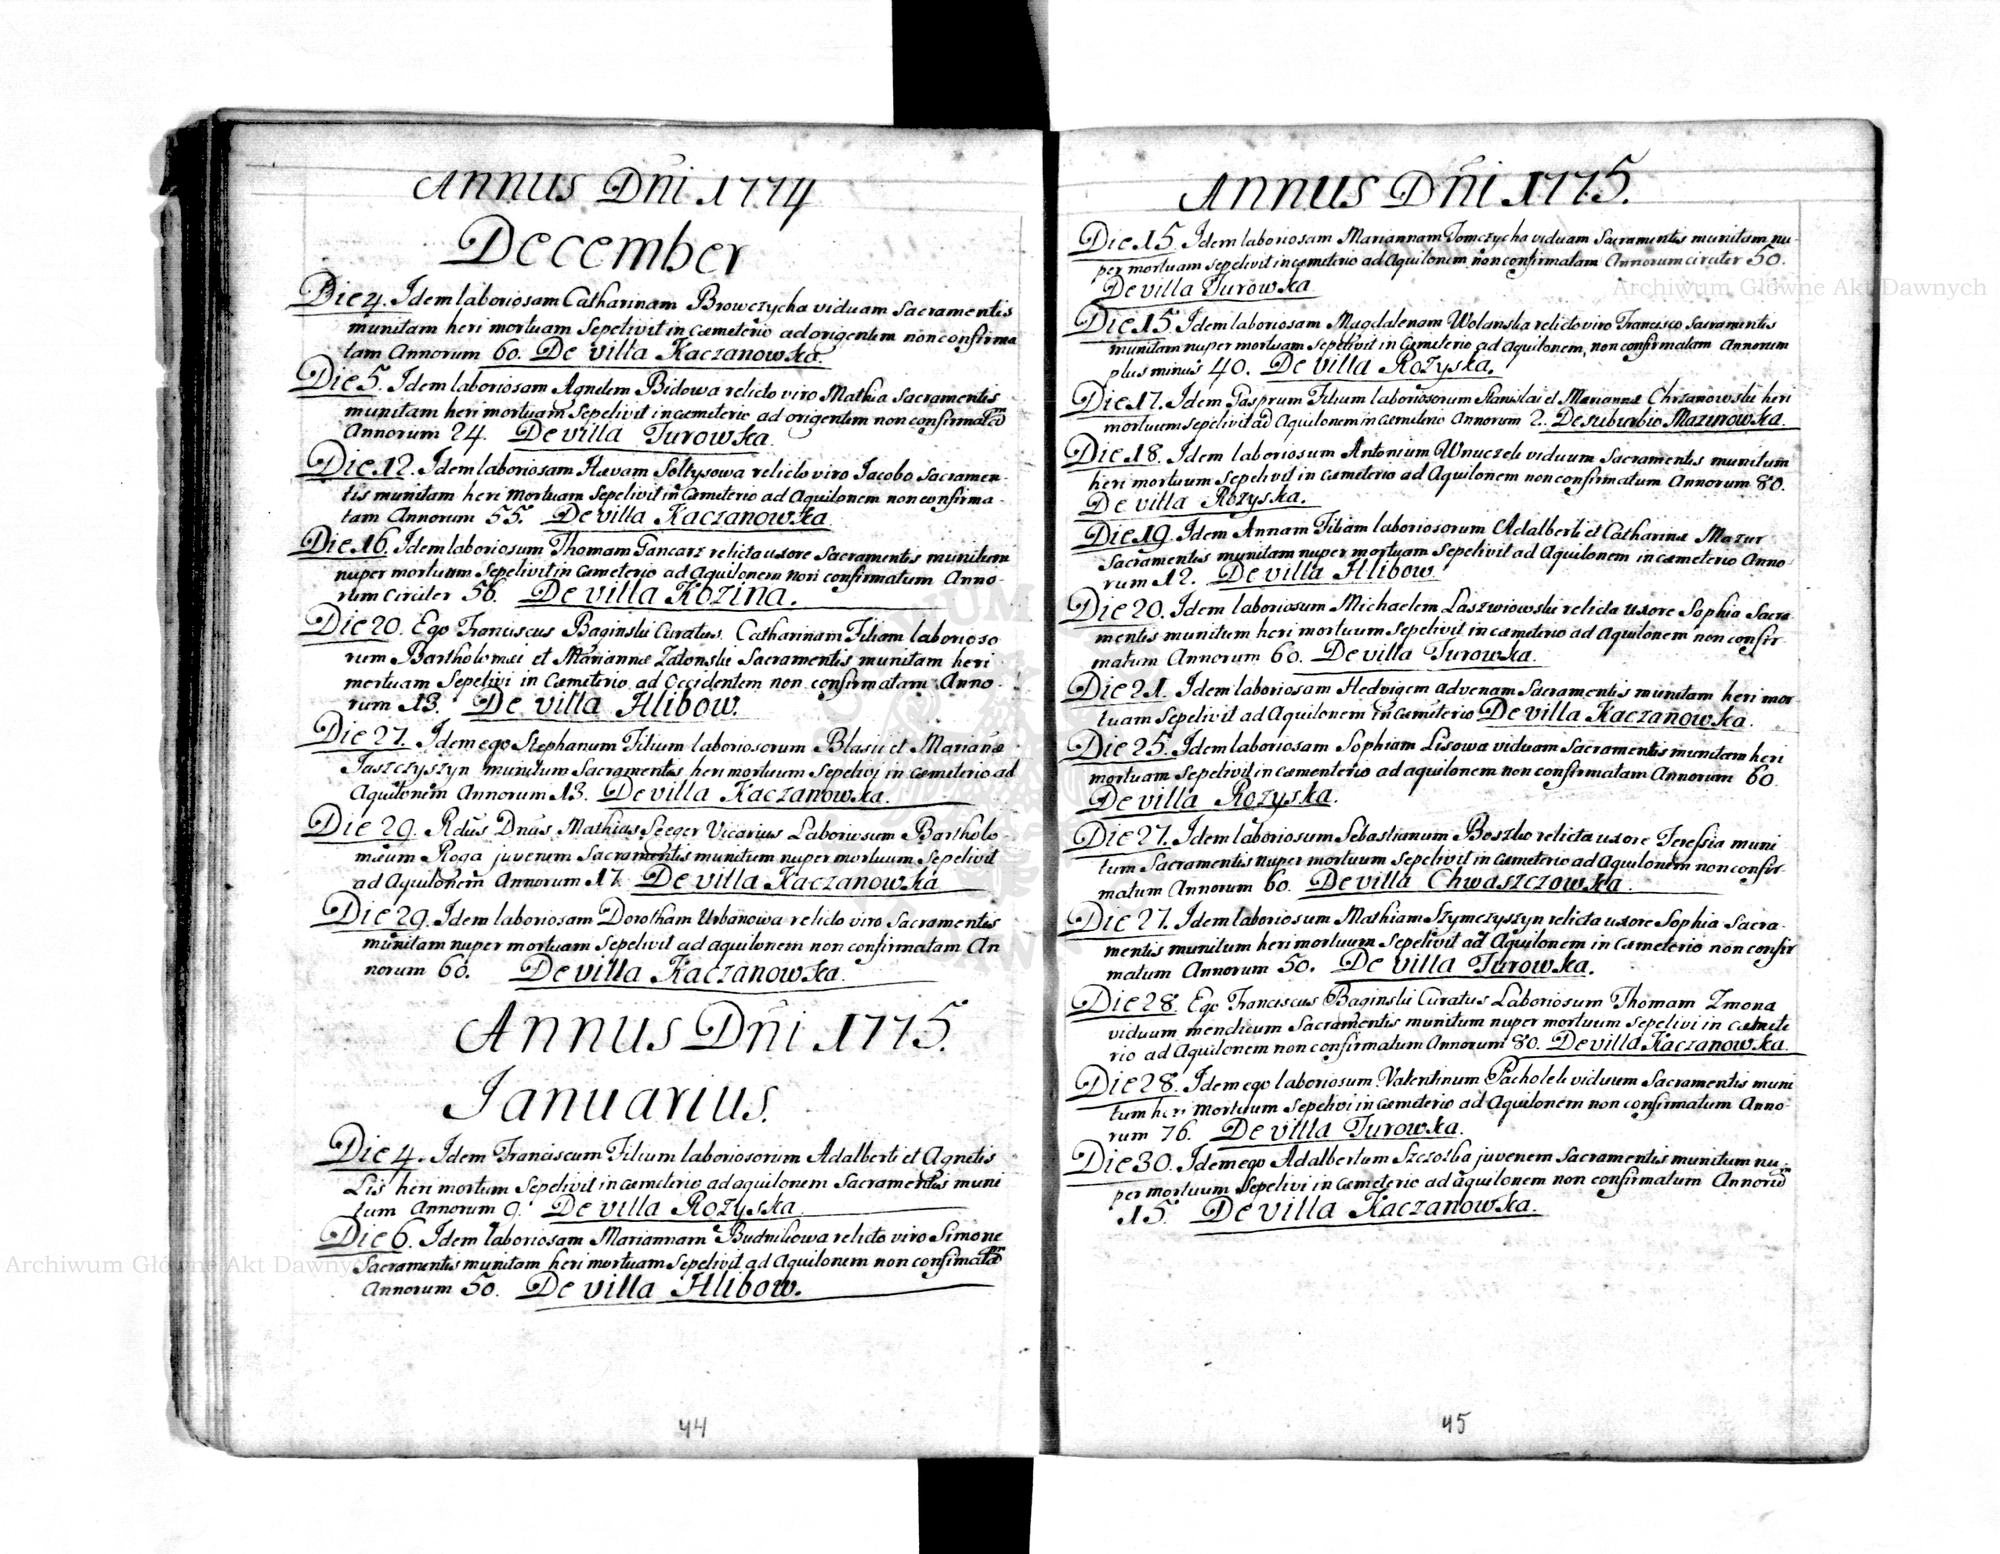 Annus Dñi 1774
December
Die 4. Idem laboriosam Catharinam Browczycha viduam Sacramentis
munitam heri mortuam Sepelivit in Cæmeterio ad origentem non confirma
tam Annorum 60. De villa Kaczanowka.
Die 5. Idem laboriosam Agnetem Bidowa relicto viro Mathia Sacramentis
munitam heri mortuam Sepelivit in cæmeterio ad origentem non confirmatã
Annorum 24. De villa Turowka.
Die 12. Idem laboriosam Hævam Soltysowa relicto viro Iacobo Sacramen-
tis munitam heri mortuam Sepelivit in Cæmeterio ad Aquilonem non confirma-
tam Annorum 55. De villa Kaczanowka
Die 16. Idem laboriosum Thomam Gancarz relicta uxore Sacramentis munitum
nuper mortuum Sepelivit in Cæmeterio ad Aquilonem non confirmatum Anno-
rum Circiter 56. De villa Kozina.
Die 20. Ego Franciscus Baginski Curatus. Catharinam Filiam laborioso
rum Bartholomæi et Mariannæ Zatonski Sacramentis munitam heri
mortuam Sepelivi in Cæmeterio ad Occidentem non confirmatam Anno-
rum 13. De villa Hlibow.
Die 27. Idem ego Stephanum Filium laboriosorum Blasii et Mariañæ
Jaszczyszyn munitum Sacramentis heri mortuum Sepelivi in Cæmeterio ad
Aquilonem Annorum 13. De villa Kaczanowka.
Die 29. Rdus Dnus Mathias Seeger Vicarius Laboriosum Bartholo-
mæum Roga juvenem Sacramentis munitum nuper mortuum Sepelivit
ad Aquilonem Annorum 17. De villa Kaczanowka
Die 29. Idem laboriosam Dorotham Urbanowa relicto viro Sacramentis
munitam nuper mortuam Sepelivit ad aquilonem non confirmatam An
norum 60. De villa Kaczanowka.
Annus Dñi 1775.
Ianuarius.
Die 4. Idem Franciscum Filium laboriosorum Adalberti et Agnetis
Lis heri mortum Sepelivit in cæmeterio ad aquilonem Sacramentis muni
tum Annorum 9. De villa Rożyska.
Die 6. Idem laboriosam Mariannam Budnikowa relicto viro Simone
Sacramentis munitam heri mortuam Sepelivit ad Aquilonem non confimatã
Annorum 50. De villa Hlibow.
44
Annus Dñi 1775.
Die 15. Idem laboriosam Mariannam Tomczycha viduam Sacramentis munitam nu-
per mortuam Sepelivit in cæmeterio ad Aquilonem non confirmatam Annorum circiter 50.
De villa Turowka
Die 15. Idem laboriosam Magdalenam Wolanska relicto viro Francisco Sacramentis
munitam nuper mortuam Sepelivit in Cæmeterio ad Aquilonem, non confirmatam Annorum
plus minus 40. De villa Rożyska.
Die 17. Idem Gasprum Filium laboriosorum Stanislai et Mariannæ Chrzanowski heri
mortuum Sepelivit ad Aquilonem in Cæmeterio Annorum 2. De suburbio Mazurowka.
Die 18. Idem laboriosum Antonium Wnuczek viduum Sacramentis munitum
heri mortuum Sepelivit in Cæmeterio ad Aquilonem non confirmatum Annorum 80.
De villa Rożyska.
Die 19. Idem Annam Filiam laboriosorum Adalberti et Catharinæ Mazur
Sacramentis munitam nuper mortuam Sepelivit ad Aquilonem in cæmeterio Anno
rum 12. De villa Hlibow.
Die 20. Idem laboriosum Michaelem Laszwiowski relicta uxore Sophia Sacra-
mentis munitum heri mortuum Sepelivit in cæmeterio ad Aquilonem non confir-
matum Annorum 60. De villa Turowka.
Die 21. Idem laboriosam Hedvigem advenam Sacramentis munitam heri mor-
tuam Sepelivit ad Aquilonem in Cæmeterio De villa Kaczanowka.
Die 25. Idem laboriosam Sophiam Lisowa viduam Sacramentis munitam heri
mortuam Sepelivit in cæmenterio ad aquilonem non confirmatam Annorum 60
De villa Rożyska.
Die 27. Idem laboriosum Sebastianum Boszko relicta uxore Teressia muni
tum Sacramentis nuper mortuum Sepelivit in Cæmeterio ad Aquilonem non confir-
matum Annorum 60. De villa Chwaszczowka.
Die 27. Idem laboriosum Mathiam Szymczyszyn relicta uxore Sophia Sacra-
mentis munitum heri mortuum Sepelivit ad Aquilonem in Cæmeterio non confir
matum Annorum 50. De villa Turowka.
Die 28. Ego Franciscus Baginski Curatus Laboriosum Thomam Zmona
viduum mendicum Sacramentis munitum nuper mortuum Sepelivi in cæmete
rio ad Aquilonem non confirmatum Annorum 80. De villa Kaczanowka.
Die 28. Idem ego laboriosum Valentinum Pacholek viduum Sacramentis muni
tum heri mortuum Sepelivi in Cæmeterio ad Aquilonem non confirmatum Anno-
rum 76. De villa Turowka.
Die 30. Idem ego Adalbertum Szczozba juvenem Sacramentis munitum nu-
per mortuum Sepelivi in Cæmeterio ad aquilonem non confirmatum Annorũ
15. De villa Kaczanowka.
45
Archiwum Główne Akt Dawnych
Archiwum Główne Akt Dawnych